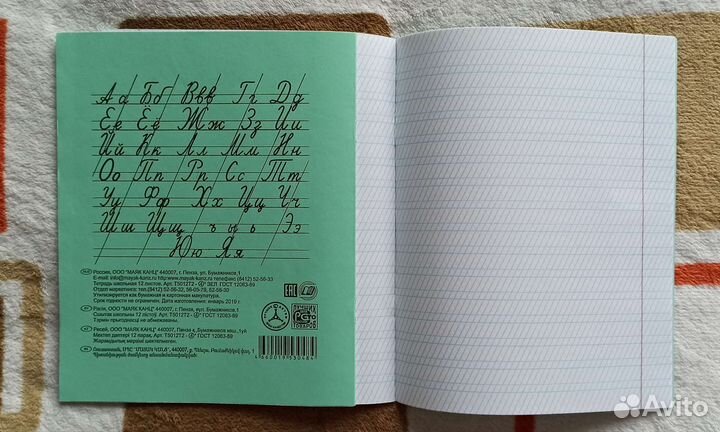 Аа Бб Ввв Гг Дд
Ее Ёё Жж Зз Ии
Йй Кк Лл Мм Нн
Оо Пп Рр Сс Тт
Уу Фф Хх Цц Чч
Шш Щщ ъ ы ь Ээ
Юю Яя
Россия, ООО "МАЯК КАНЦ" 440007, г. Пенза, ул. Бумажников,1
E-mail: info@mayak-kanz.ru http:www.mayak-kanz.ru телефакс (8412) 52-56-33
Тетрадь школьная 12 листов. Арт. Т5012Т2 - ⑤ ЗЕЛ ГОСТ 12063-89
Отдел маркетинга: тел.(8412) 52-56-32, 56-05-79, 52-56-30
Утилизируется как бумажная и картонная макулатура.
Срок годности не ограничен. Дата изготовления: январь 2019 г.
ООО "МАЯК КАНЦ" 440007, г. Пенза, вул. Бумажников,1
12 Арт. Т5012Т2 - ⑤ ЗЕЛ ГОСТ 12063-89
Тэрмін прыгоднасці не абмежаваны.
Ресей, ООО "МАЯК КАНЦ" 440007, Пенза қ, Бумажников көш.,1үй
Мектеп дәптері 12 парақ. Арт. Т5012Т2 - ⑤ ЗЕЛ ГОСТ 12063-89
Жарамдылық мерзімі шектелмеген.
440007,
EAC
ЛУЧШИЕ
PCТ
ТОВАРОВ
4 660019 530484
Avito